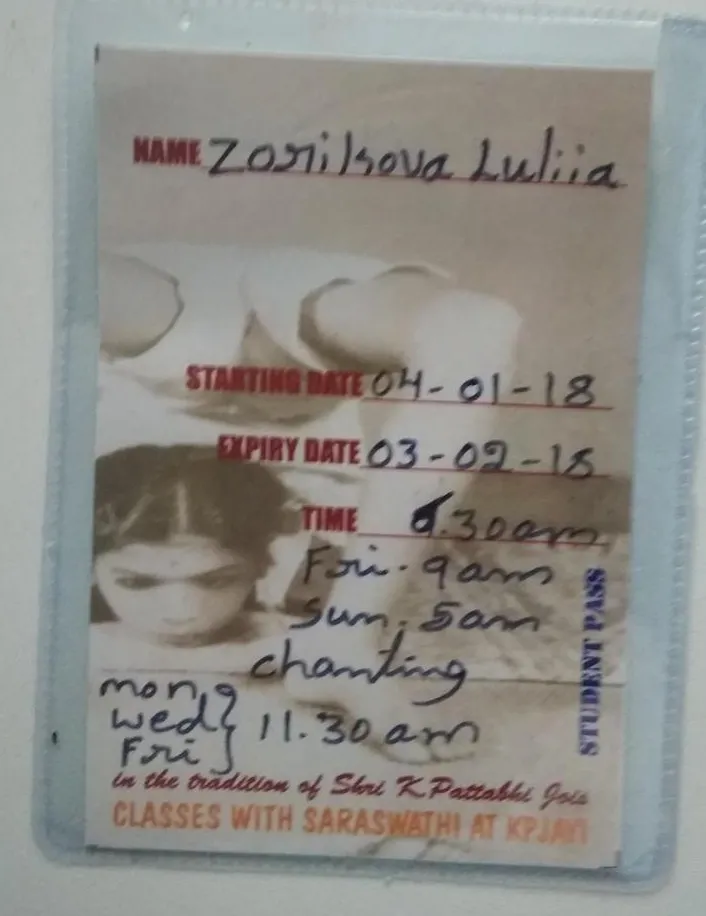 NAME Zorikova Luliia
STARTING DATE 04-01-18
EXPIRY DATE 03-02-18
TIME .30am
Fri. 9am
Sun. 5am
chanting
mon
wed } 11.30 am
Fri
STUDENT PASS
in the tradition of Shri K.Pattabhi Jois
CLASSES WITH SARASWATHI AT KPJAYI